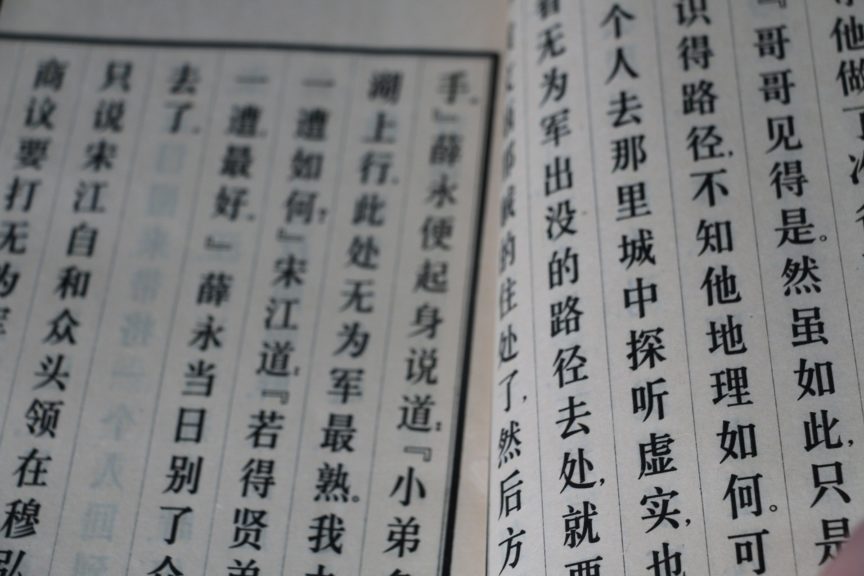 他做
『哥哥见得是。然虽如此,只是
识得路径,不知他地理如何。可
个人去那里城中探听虚实,也
看无为军出没的路径去处,就要
的住处了,然后方
手。』薛永便起身说道:『小弟
湖上行。此处无为军最熟。我
一遭如何?』宋江道:『若得贤弟
一遭最好。』薛永当日别了众
去了。
只说宋江自和众头领在穆弘
商议要打无为军